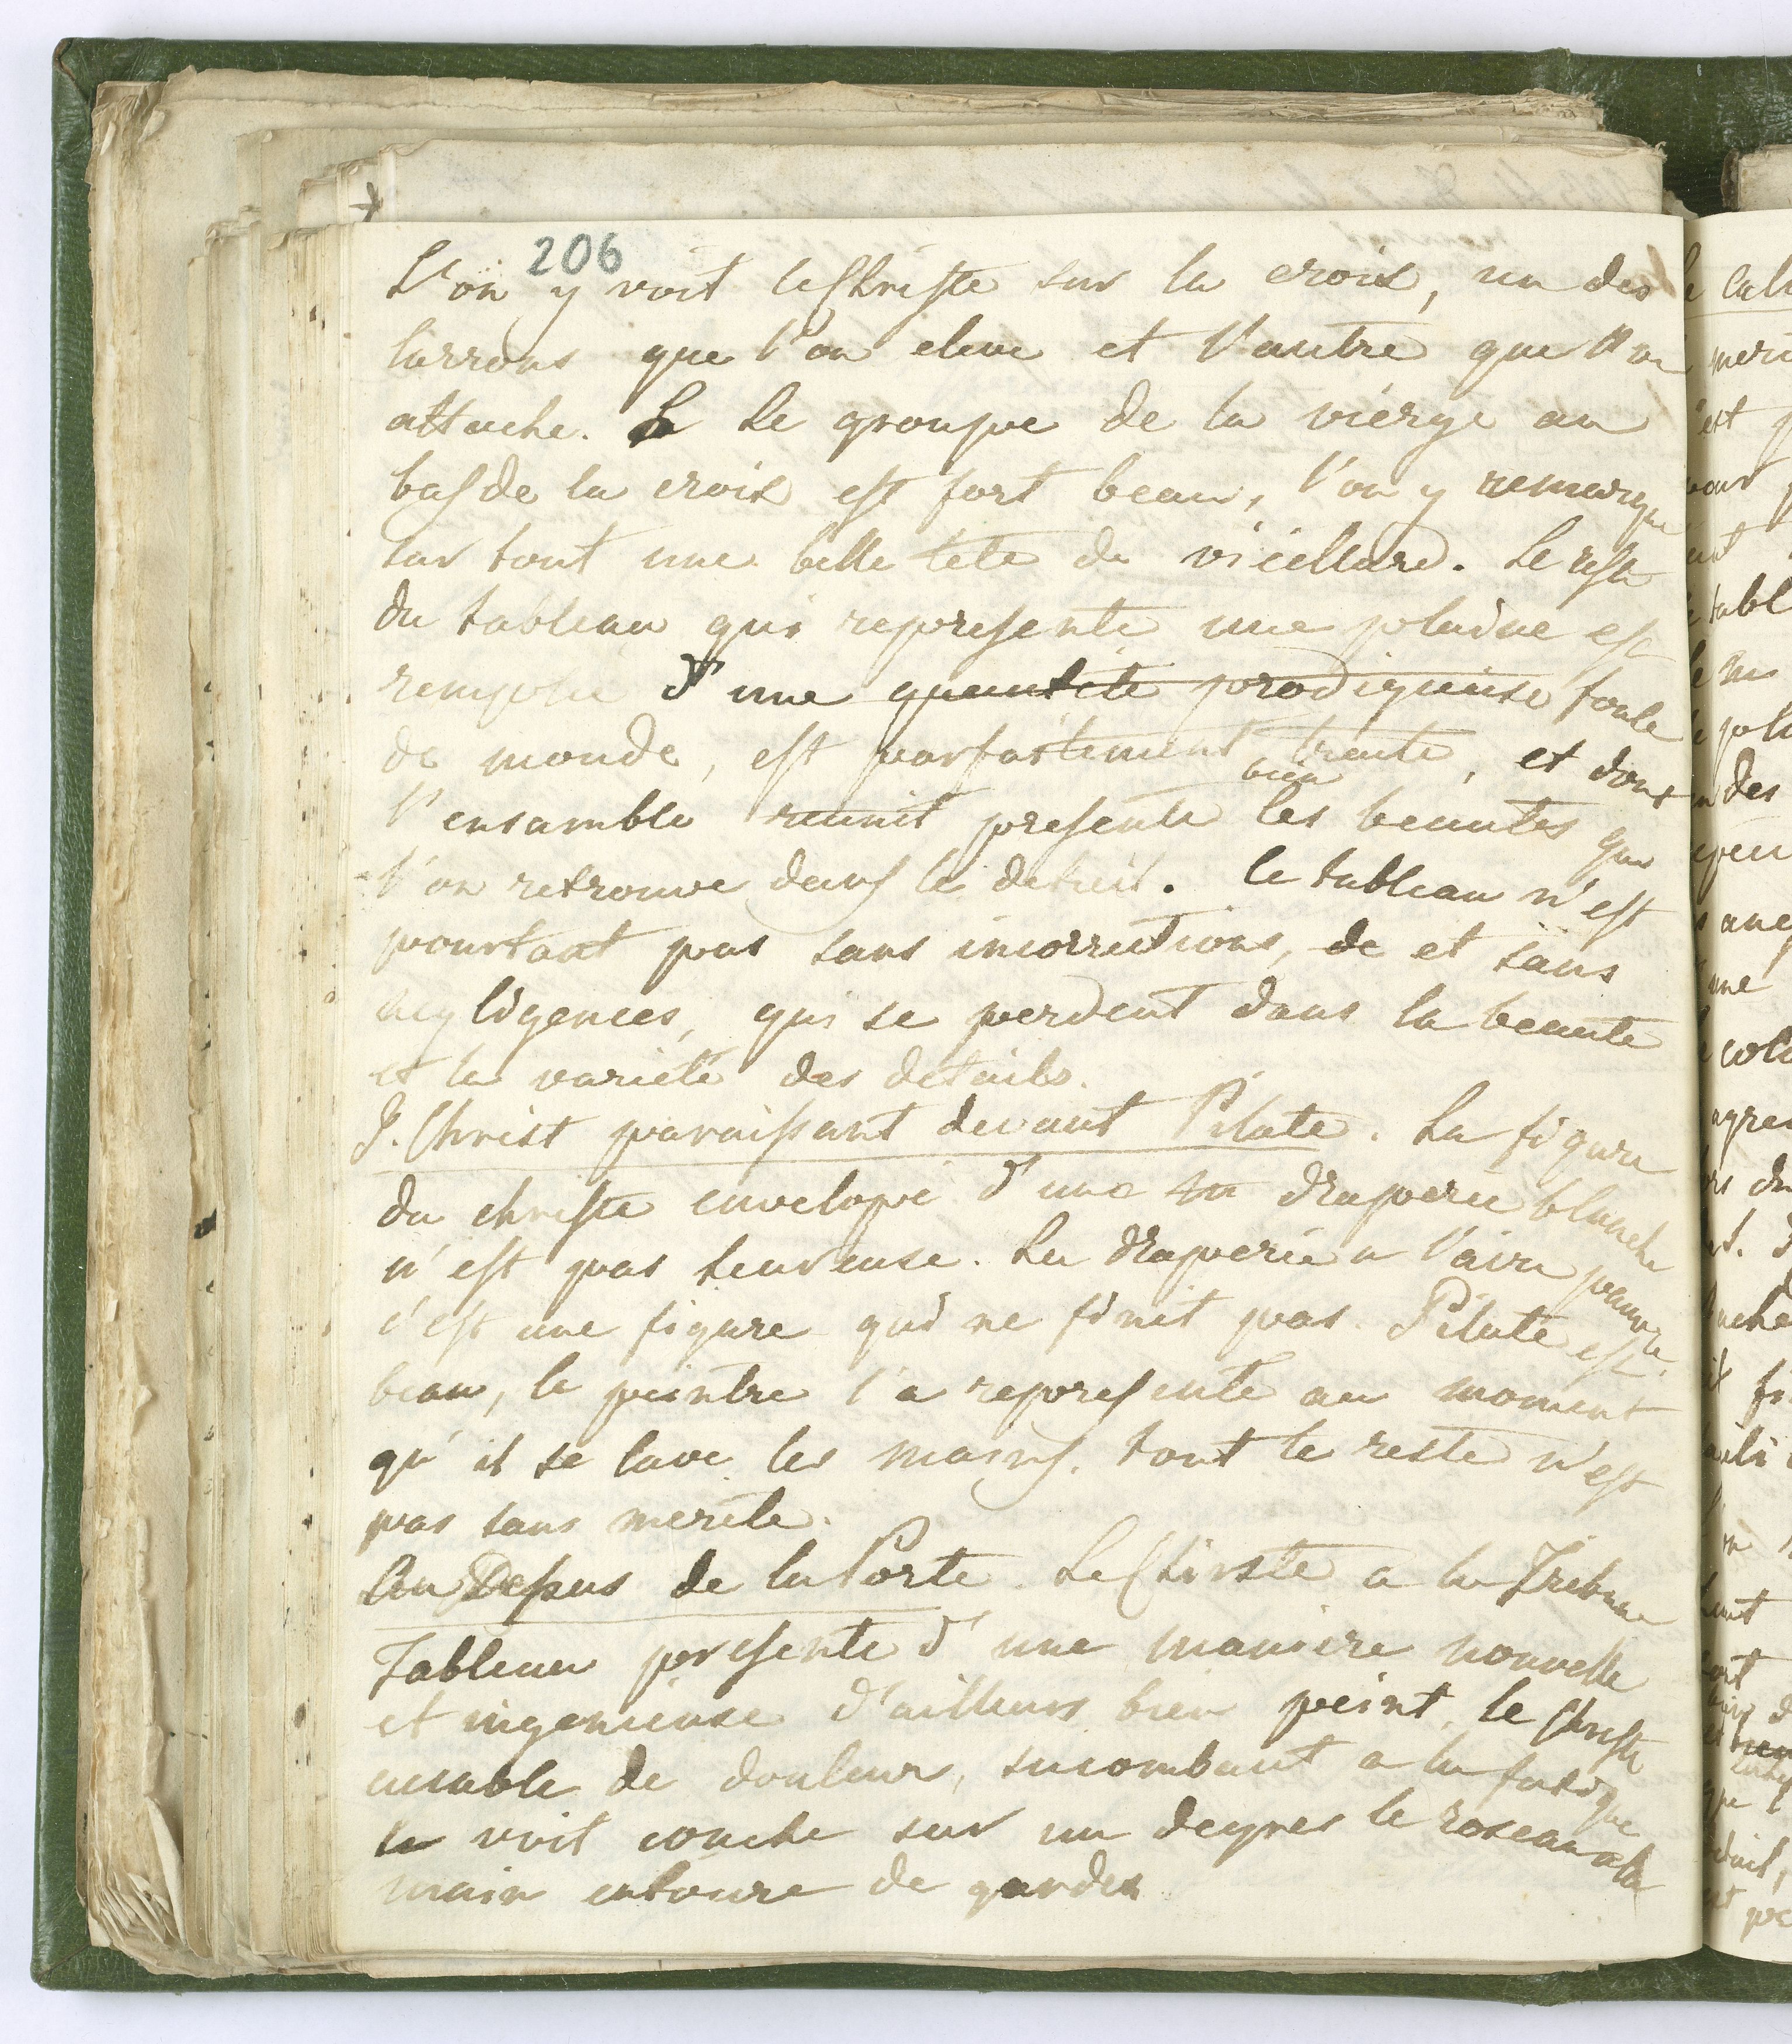 206
L'on y voit le Christe sur la croix, un des
larrons que l'on eleve et l'autre que l'on
attache. Le groupe de la viérge au
bas de la croix est fort beau, l'on y remarque
sur tout une belle tete de vieillard. Le reste
du tableau qui represente une plaine est
remplie d'une quantité prodigieuse foule
de monde, est parfaitement traité, et dont
bien
l'ensamble reunit presente les beautés que
l'on retrouve dans le detail. Ce tableau n'est
pourtant pas sans incorrections, de et sans
negligences, qui se perdent dans la beauté
et la varieté des details.
J. Christ paraissant devant Pilate. La figure
du christe envelopé d'une draperie blanche
n'est pas heureuse. La draperie a l'aire pauvre
c'est une figure qui ne finit pas. Pilate est
beau, le peintre l'a represente au moment
qu'il se lave les mains. tout le reste n'est
pas sans merite.
Au Dessus de la Porte. Le Christe a la Tribune
Tableau presente d'une maniere nouvelle
et ingenieuse d'ailleurs bien peint, le Christe
acable de douleur, sucombant a la fatigue
se voit couche sur un degres le roseau a la
main entoure de gardes